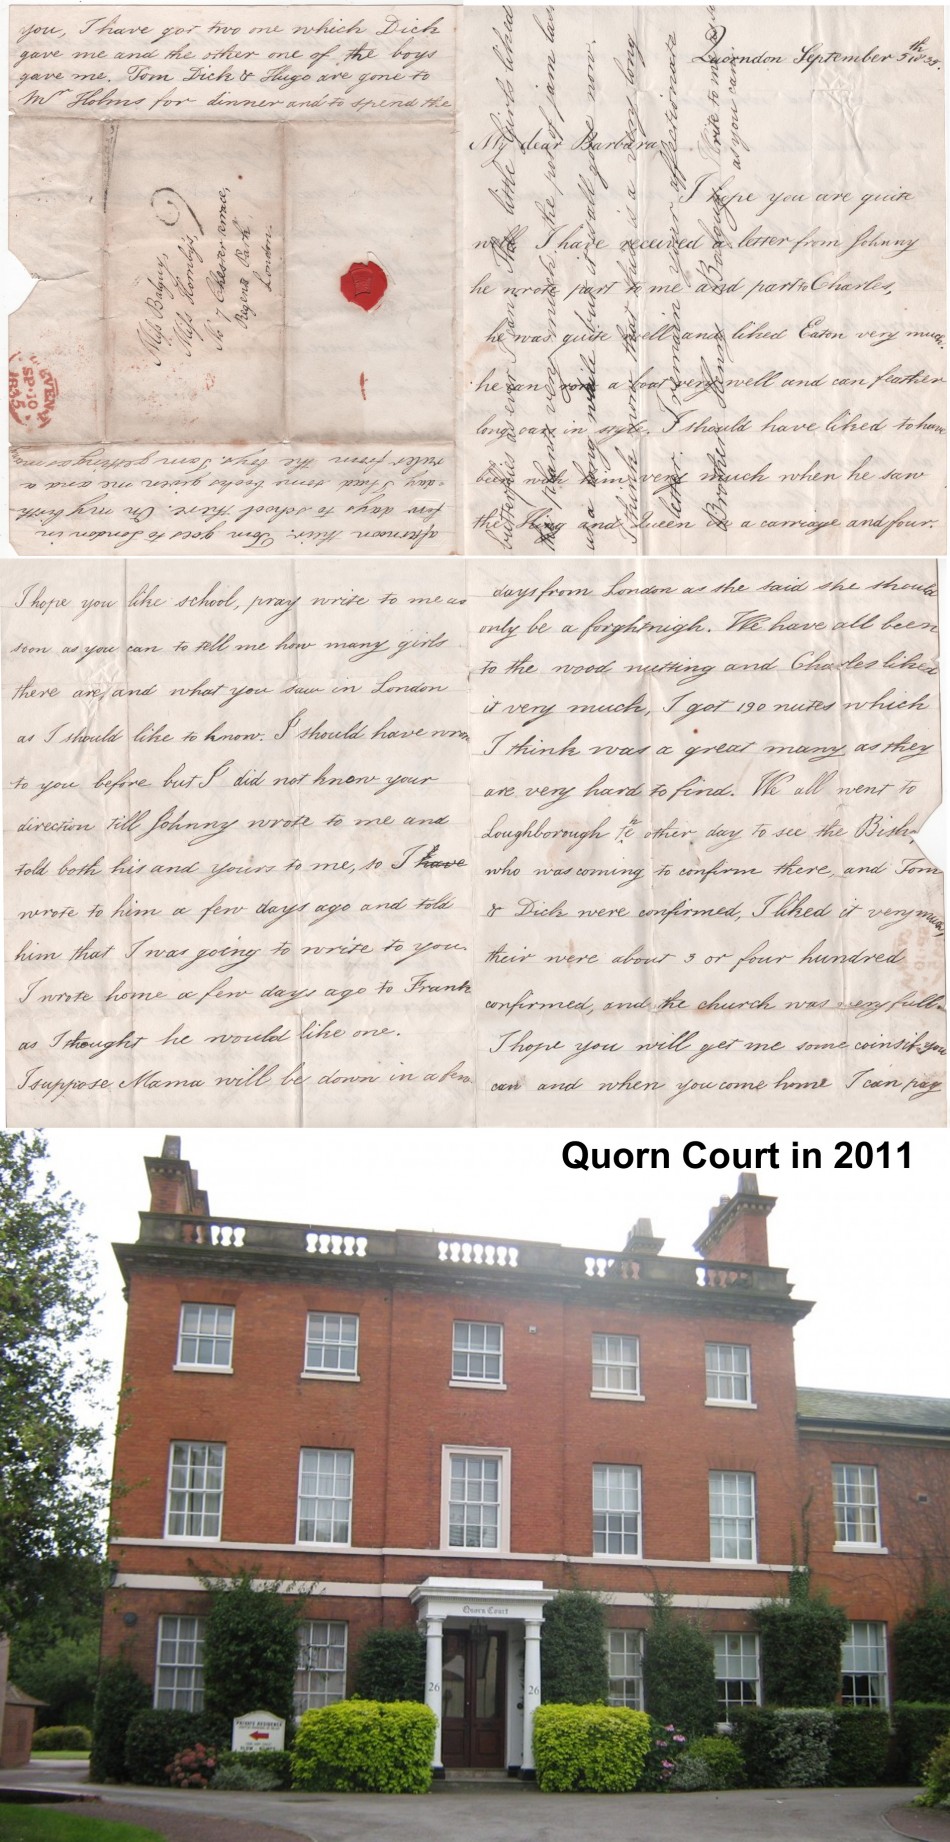 you, I have got two one which Dick
gave me and the other one of the boys
gave me. Tom Dick & Hugo are gone to
Mr Holms for dinner and to spend the
Miss Balguy,
Miss Hornby's,
No 7 Chester Terrace,
Regents Park
London.
EVEN
SP. 10
1835
afternoon their. Tom goes to London in
few days to school there. On my birth
day I had some books given me and a
ruler from the boys. I am getting some
Quorndon September 5th
My dear Barbara,
I hope you are quite
well. I have received a letter from Johnny
he wrote part to me and part to Charles,
he was quite well and liked Eaton very much.
he can row a boat very well and can feather
long oars in style. I should have liked to have
been with him very much when he saw
the King and Queen in a carriage and four.
I hope you like school, pray write to me as
soon as you can to tell me how many girls
there are, and what you saw in London
as I should like to know. I should have wrote
to you before but I did not know your
direction till Johnny wrote to me and
told both his and yours to me, so I have
wrote to him a few days ago and told
him that I was going to write to you.
I wrote home a few days ago to Frank
as I thought he would like one.
I suppose Mama will be down in a few
days from London as she said she should
only be a forghtnigh. We have all been
to the wood nutting and Charles liked
it very much, I got 190 nutes which
I think was a great many as they
are very hard to find. We all went to
Loughborough te other day to see the Bish
who was coming to confirm there, and Tom
& Dick were confirmed, I liked it very much,
their were about 3 or four hundred
confirmed, and the church was very full.
I hope you will get me some coins if you
can and when you come home I can pay
butterflies as ever I can. The little girls liked
the plants very much, the pot of jam las
us a long while but it is all gone now.
I think now that this is a very long
letter. I remain your affectionate
Brother Henry Balguy. Write to me
as you can.
Quorn Court in 2011
Quorn Court
26
26
PRIVATE RESIDENCE